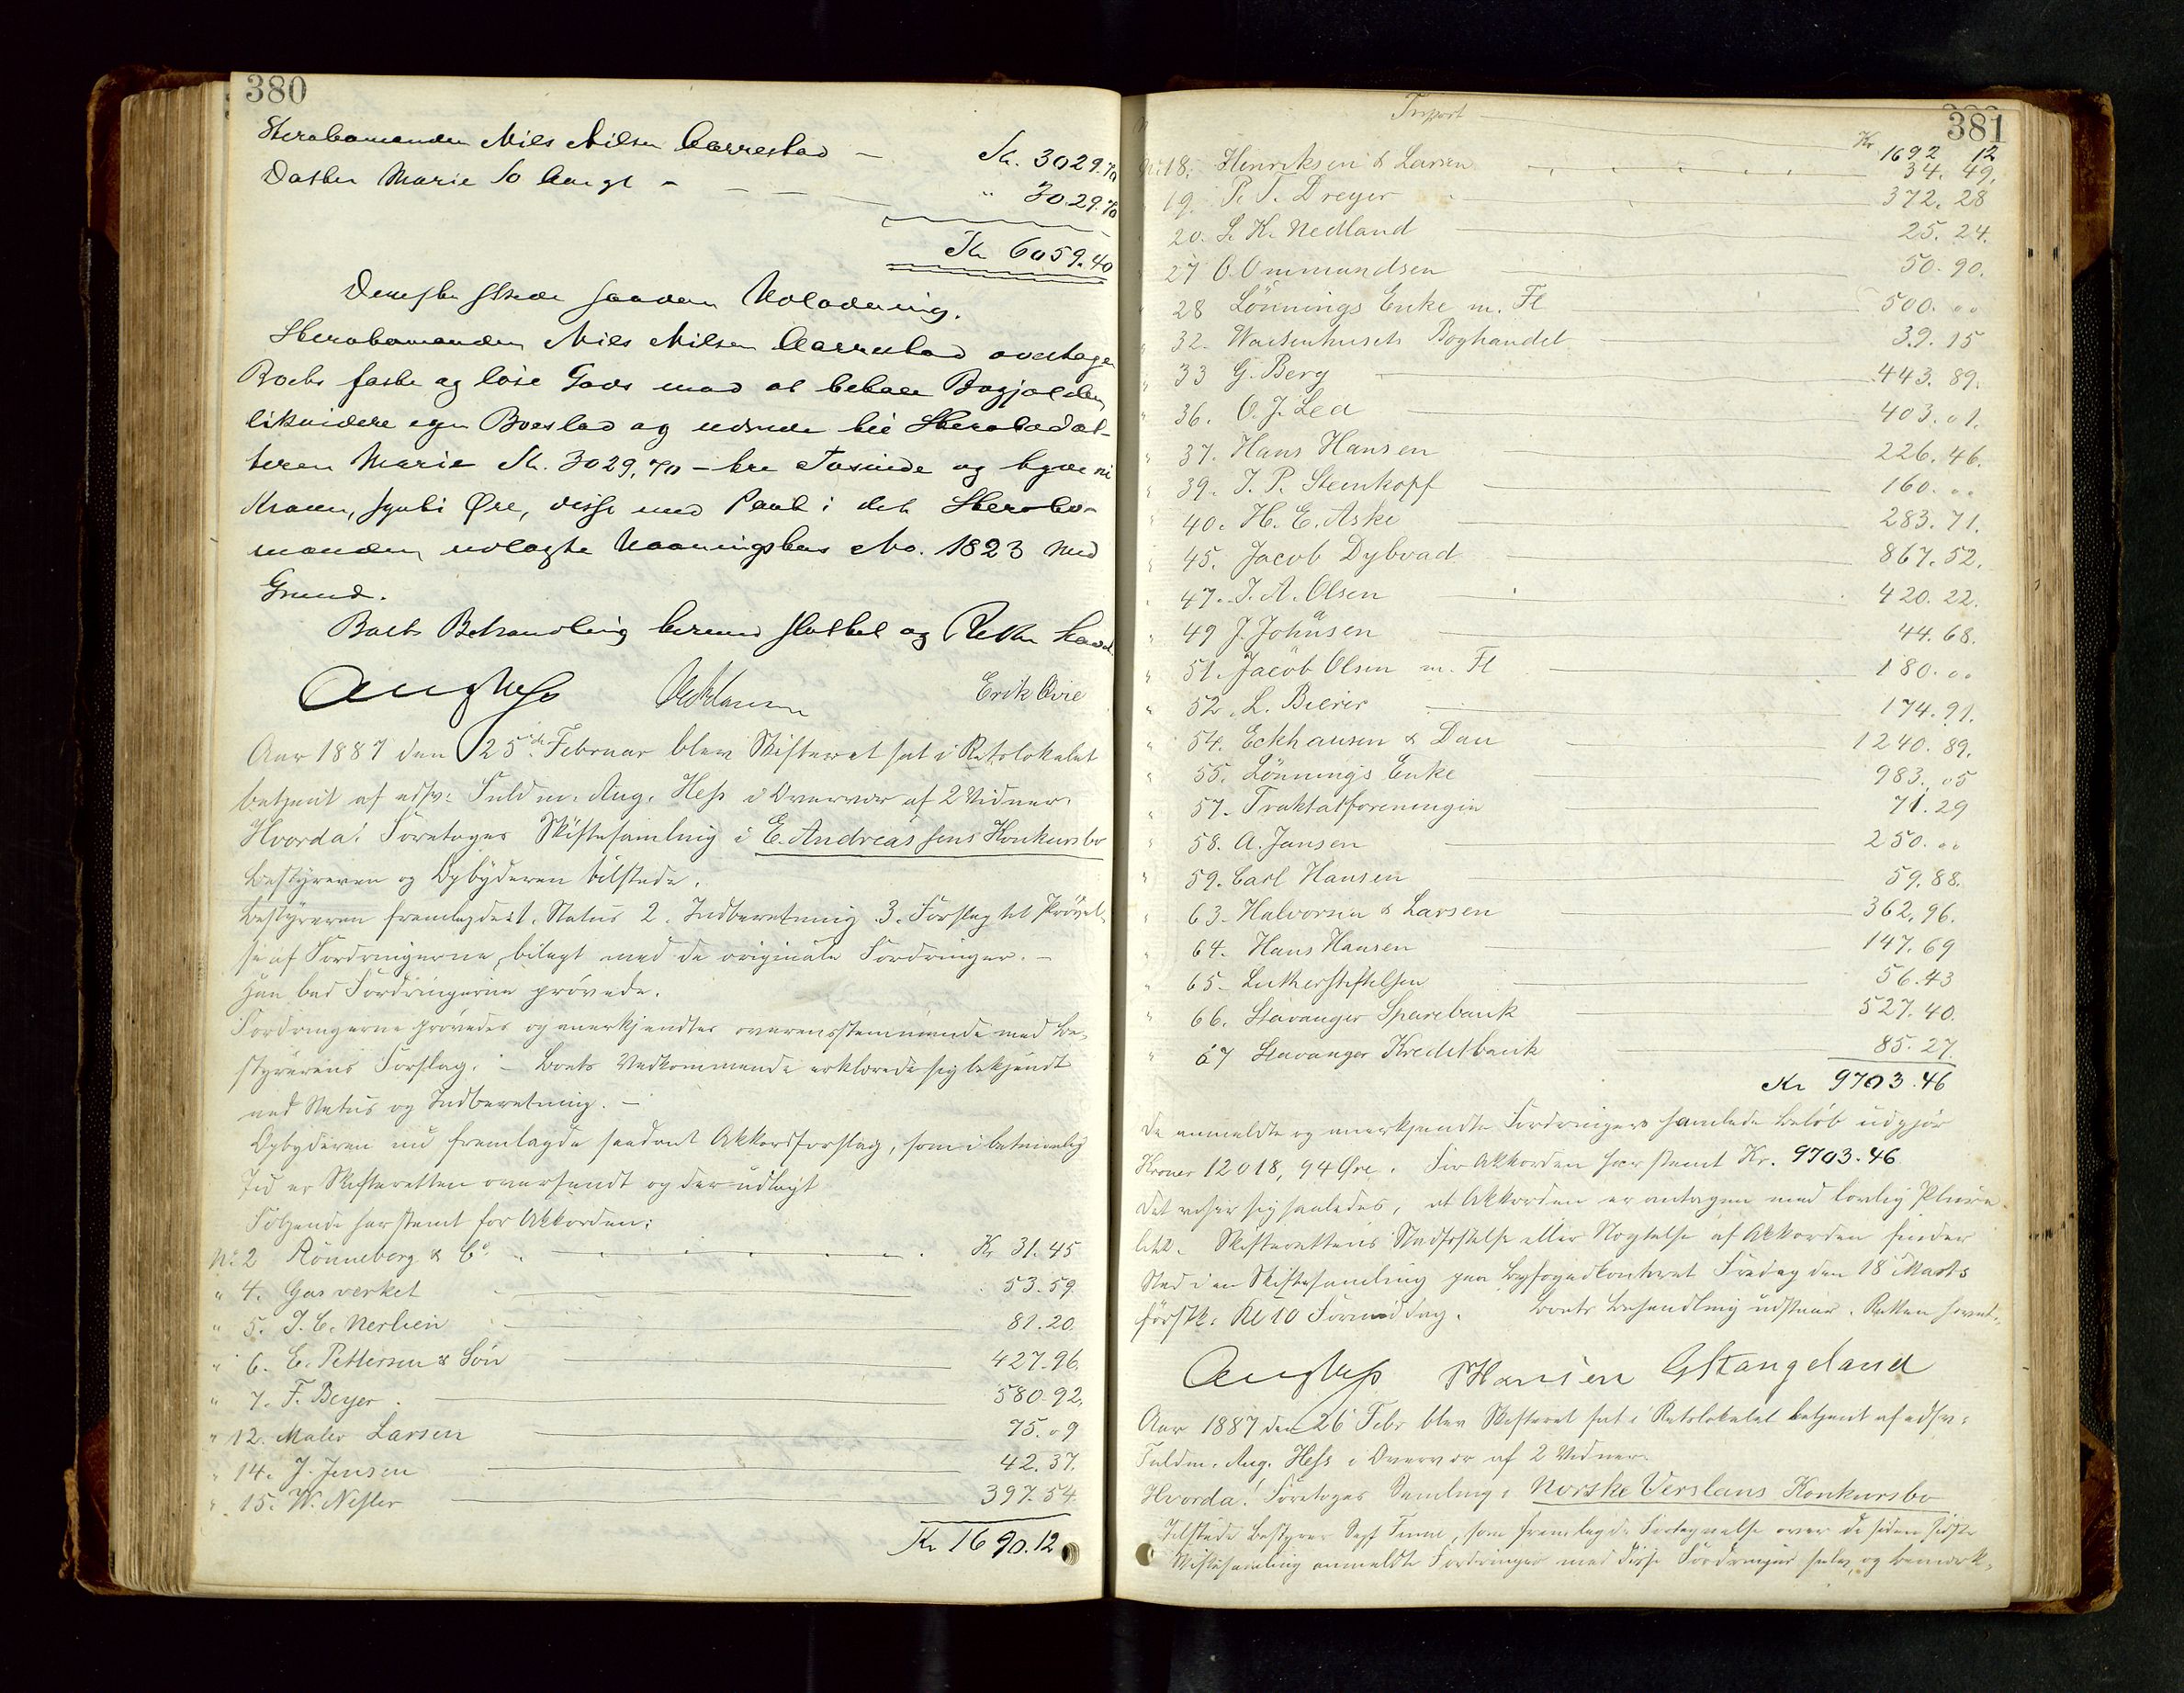 380
Sterbomanden Nils Nilsen Aarrestad — Kr. 3029.70
Datter Marie 10 Aar gl — — — " 3029.70
Kr 6059.40
Derefter skede saadan Udlodning.
Sterbomanden Nils Nilsen Aarrestad overtager
Boets faste og løse Gods mod at betale Bogjælden,
likvidere egen Boeslod og udrede til Sterbodat-
teren Marie Kr. 3029,70 – tre Tusinde og tyve ni
Kroner, sytti Øre, disse med Pant i det Sterbo-
manden udlagte Vaaningshus No. 1823 med
Grund.
Boets Behandling hermed sluttet og Retten hævet.
Aug Hess Erik Øvie
Aar 1887 den 25de Februar blev Skifteret sat i Retslokalet
betjent af edsv: Fuldm. Aug. Hess i Overvær af 2 Vidner.
Hvorda! Foretoges Skiftesamling i E. Andreassens Konkursbo
Bestyreren og Opbyderen tilstede.
Bestyreren fremlagde 1. Status 2. Indberetning 3. Forslag til Prövel-
se af Fordringerne, bilagt med de originale Fordringer. –
Han bad Fordringerne prövede.
Fordringerne prövedes og anerkjendtes overensstemmende med Be-
styrerens Forslag. – Boets Vedkommende erklærede sig bekjendt
med Status og Indberetning. –
Opbyderen nu fremlagde saadant Akkordforslag, som i betimelig
Tid er Skifteretten oversendt og der udlagt
Følgende har stemt for Akkorden:
No 2 Rönneberg & Co. Kr 31.45
" 4. Gasverket 53.59
" 5. J. C. Nerlien 81.20
" 6. E. Pettersen & Sön 427.96
" 7. F. Beyer 580.92
" 12. Maler Larsen 75.09
" 14. J. Jensen 42.37.
" 15. W. Nessler 397.54
Kr 1690.12
381
Trsport Kr 1692 12
No 18. Henriksen & Larsen 34. 49.
" 19. P. T. Dreyer 372. 28
" 20. L. K. Nedland 25. 24.
" 27 O. Ommundsen 50. 90.
" 28 Lönnings Enke m. Fl 500. 00
" 32. Waisenhusets Boghandel 39. 15
" 33 G. Berg 443. 89.
" 36. O. J. Lea 403. 01.
" 37. Hans Hansen 226. 46.
" 39. J. P. Steinkopf 160. 00
" 40. H. E. Aske 283. 71.
" 45. Jacob Dybvad 867. 52.
" 47. J. A. Olsen 420. 22.
" 49 J. Johnsen 44. 68.
" 51. Jacob Olsen m. Fl 180. 00
" 52 L. Bierer 174. 91.
" 54. Eckhausen & Dau 1240. 89.
" 55. Lönnings Enke 983. 05
" 57. Traktatforeningen 71. 29
" 58. A. Jansen 250. 00
" 59. Carl Hansen 59. 88.
" 63. Halvorsen & Larsen 362. 96.
" 64. Hans Hansen 147. 69
" 65. Lutherstiftelsen 56. 43
" 66. Stavanger Sparebank 527. 40.
" 67 Stavanger Kreditbank 85. 27.
Kr 9703.46
De anmeldte og anerkjendte Fordringers samlede Belöb udgjör
Kroner 12018, 94 Øre. For Akkorden har stemt Kr. 9703.46
Det viser sig saaledes, at Akkorden er antagen med lovlig Plura-
litet. Skifterettens Stadfæstelse eller Nægtelse af Akkorden finder
Sted i en Skiftesamling paa Byfogedkontoret Fredag den 18 Marts
förstk: Kl 10 Formiddag. Boets Behandling udstaar. Retten hævet.
Aug Hess Hansen G Stangeland
Aar 1887 den 26 Febr blev Skifteret sat i Retslokalet betjent af edsv:
Fuldm. Aug. Hess i Overvær af 2 Vidner.
Hvorda! Foretoges Samling i Norske Verslaus Konkursbo
Tilstede Bestyrer Sagf, som fremlagde Fortegnelse over de siden sidste
Skiftesamling anmeldte Fordringer med disse Fordringer selv, og bemærk-